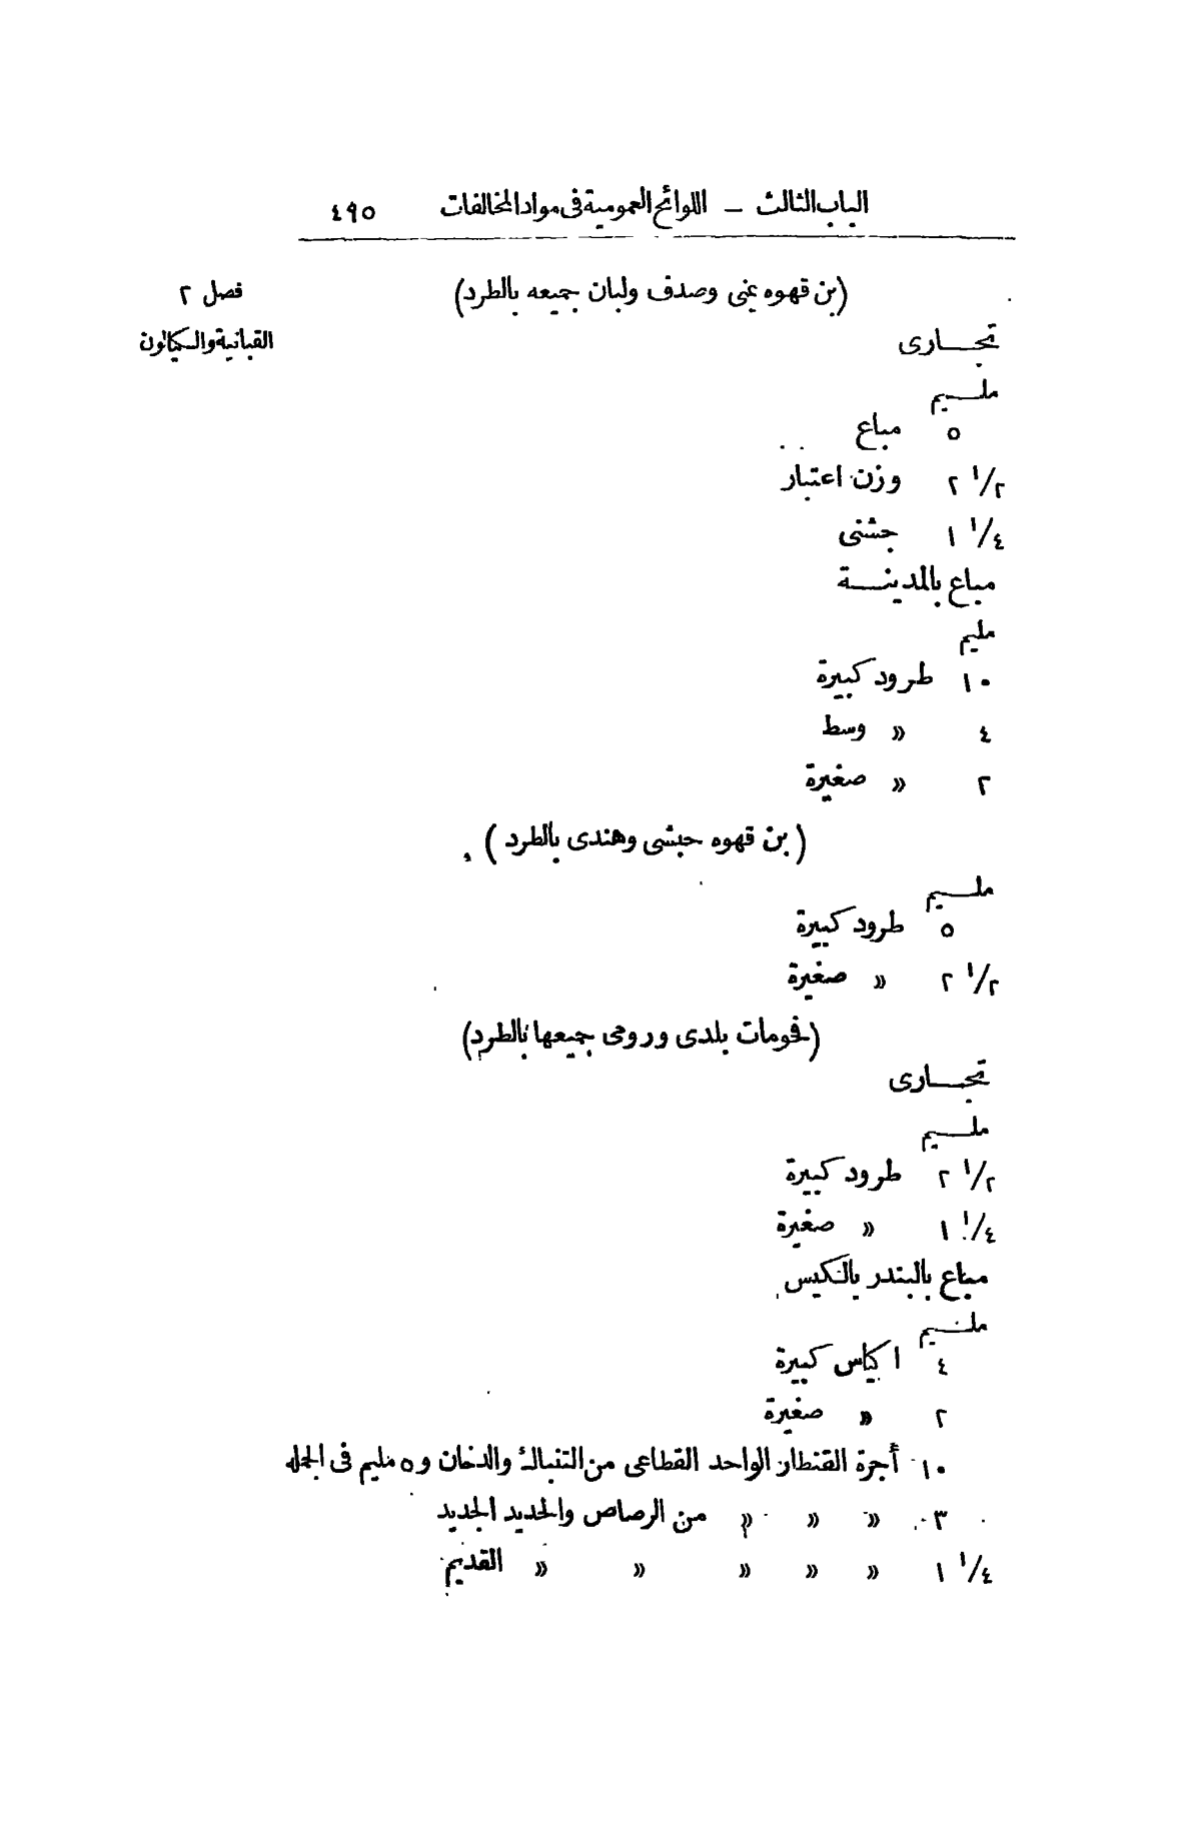 الباب الثالث – اللوائح العمومية فى مواد المخالفات ٤٩٥
فصل ٢
القبانية والكيالون
(بن قهوه يمنى وصدف ولبان جميعه بالطرد)
تجارى
مليم
٥ مباع
٢ ١/٢ وزن اعتبار
١ ١/٤ جشنى
مباع بالمدينة
مليم
١٠ طرود كبيرة
٤ » وسط
٢ » صغيرة
(بن قهوه حبشى وهندى بالطرد)
مليم
٥ طرود كبيرة
٢ ١/٢ » صغيرة
(فحومات بلدى ورومى جميعها بالطرد)
تجارى
مليم
٢ ١/٢ طرود كبيرة
١ ١/٤ » صغيرة
مباع بالبندر بالكيس
مليم
٤ اكياس كبيرة
٢ » صغيرة
١٠ أجرة القنطار الواحد القطاعى من التنباك والدخان و ٥ مليم فى الجمله
٠٣ » » » من الرصاص والحديد الجديد
١ ١/٤ » » » » » القديم